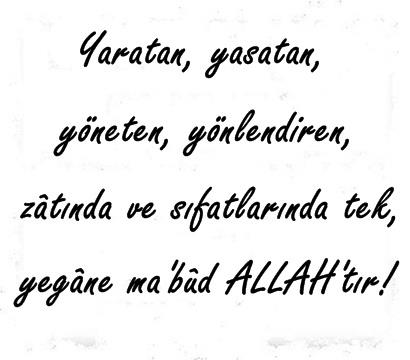 Yaratan, yasatan,
yöneten, yönlendiren,
zâtında ve sıfatlarında tek,
yegâne ma'bûd ALLAH'tır!